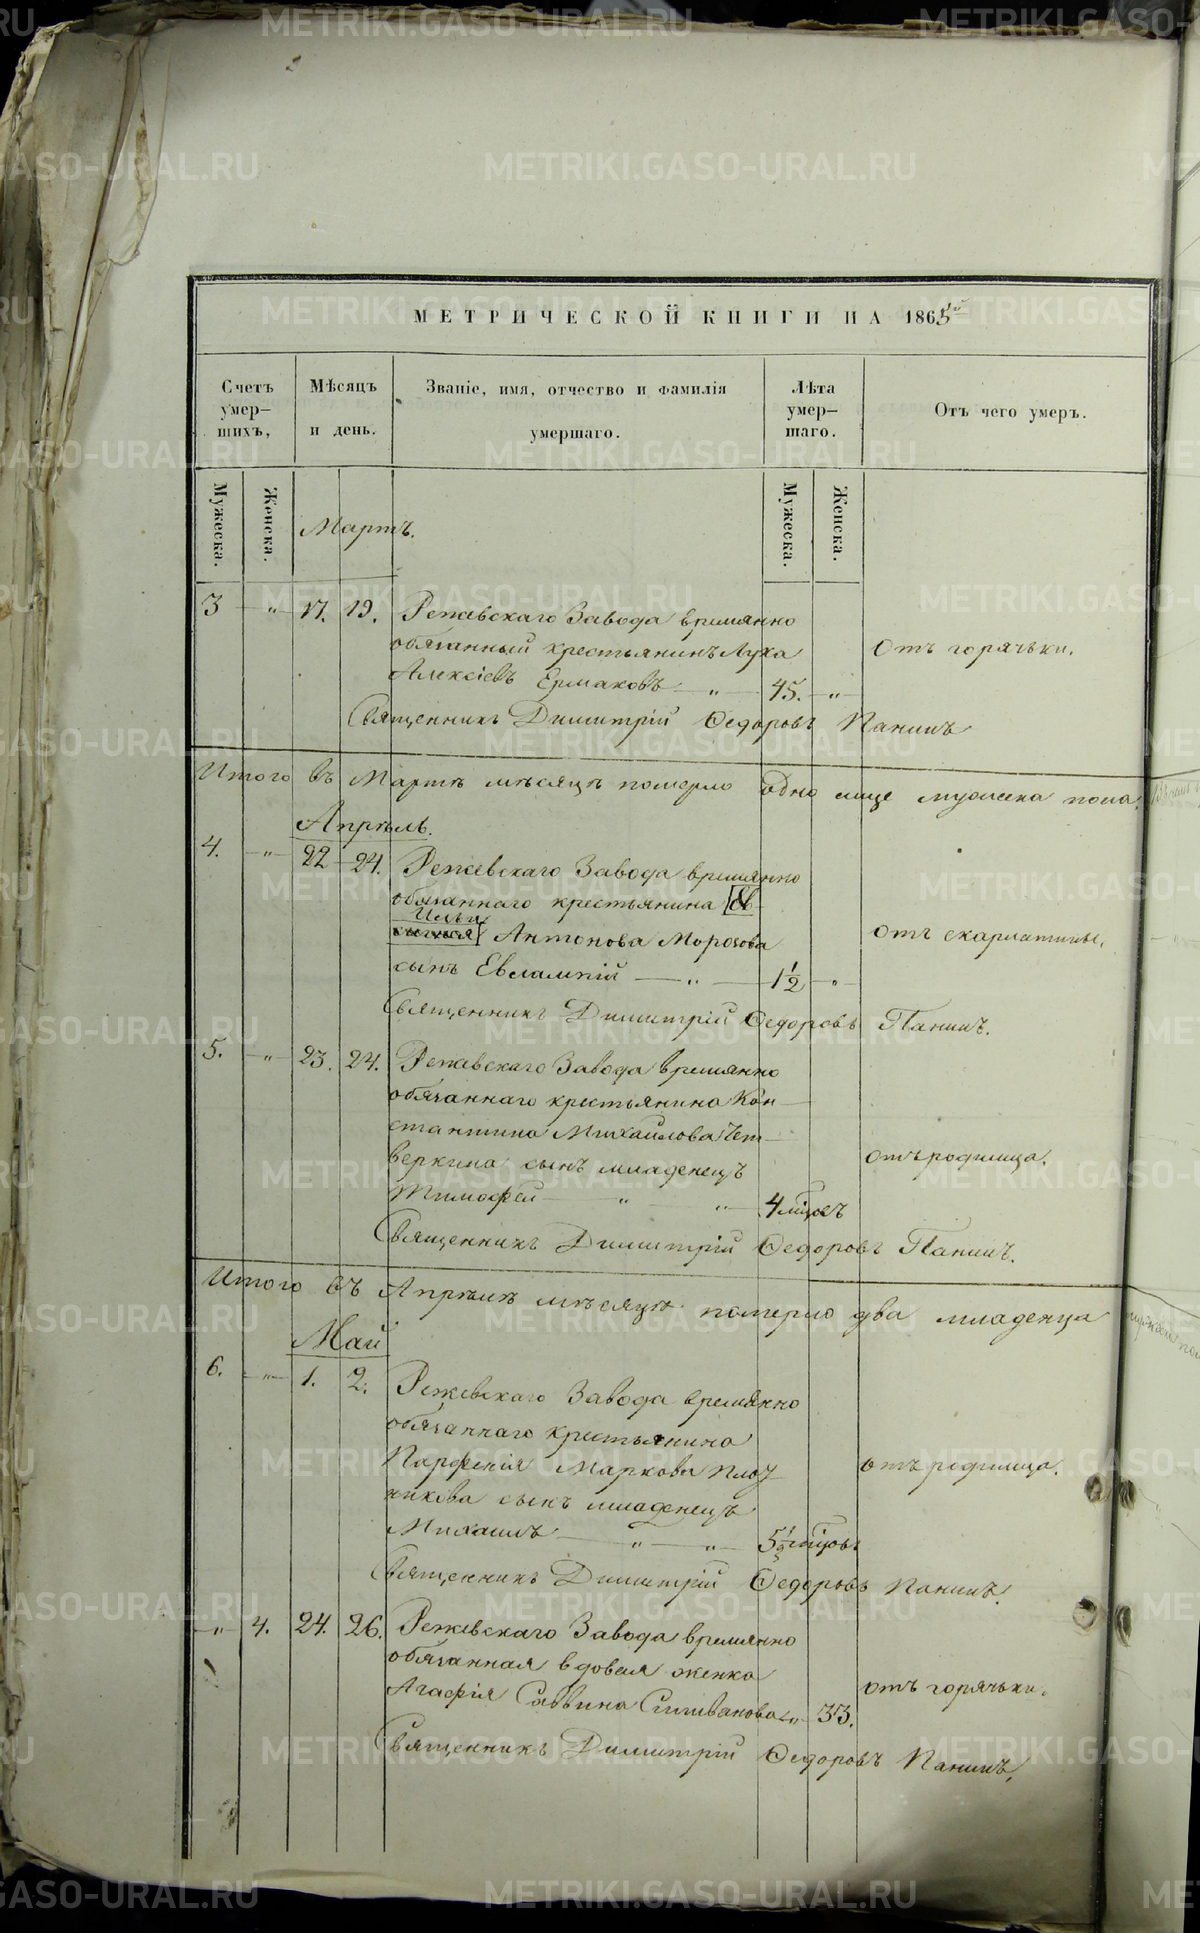 МЕТРИЧЕСКОЙ КНИГИ НА 1865й
Счетъ умер-шихъ,
Мѣсяцъ и день.
Званіе, имя, отчество и фамилія умершаго.
Лѣта умер-шаго.
Отъ чего умеръ.
Мужеска.
Женска.
Мартъ.
Мужеска.
Женска.
3 " 17. 19. Режевскаго Завода времянно
обязанный крестьянинъ Лука
Отъ горячьки.
Алексіевъ Ермаковъ " 45. "
Священникъ Димитрій Ѳедоровъ Панинъ
Итого въ Мартѣ мѣсяцѣ померло одно лице мужеска пола.
Апрѣль.
4. " 22 24. Режевскаго Завода времянно
обязаннаго крестьянина
Ильи
Антонова Морозова
отъ скарлатины.
сынъ Евлампій " 1 1/2 "
Священникъ Димитрій Ѳедоровъ Панинъ.
5. " 23. 24. Режевскаго Завода времянно
обязаннаго крестьянина Кон
стантина Михайлова Чет
веркина сынъ младенецъ
отъ родимца.
Тимофей " " 4 мѣсяцъ
Священникъ Димитрій Ѳедоровъ Панинъ.
Итого въ Апрѣлѣ мѣсяцѣ померло два младенца
Май
6. " 1. 2. Режевскаго Завода времянно
обязаннаго крестьянина
Парфенія Маркова Плот
отъ родимца.
никова сынъ младенецъ
Михаилъ " " 5 1/2 мѣсяцовъ
Священникъ Димитрій Ѳедоровъ Панинъ.
" 4. 24. 26. Режевскаго Завода времянно
обязанная вдовая женка
отъ горячьки.
Агафія Саввина Силиванова " 33.
Священникъ Димитрій Ѳедоровъ Панинъ.
METRIKI.GASO-URAL.RU